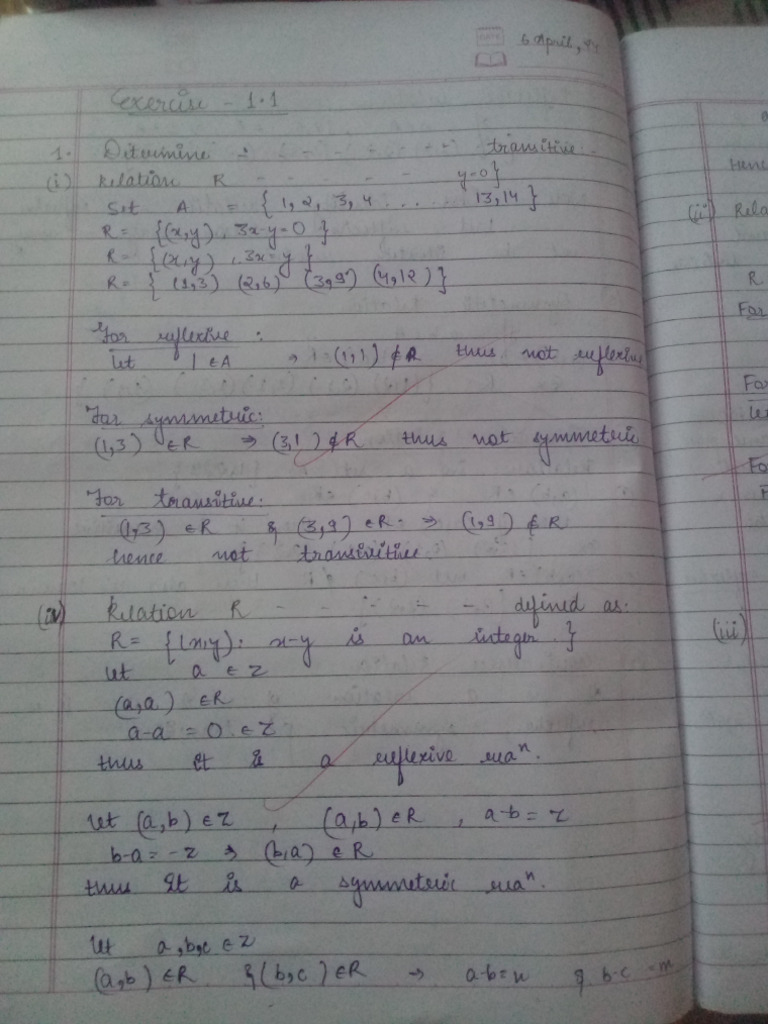 6 April, 24
Exercise - 1.1
1. Determine - - - - transitive.
(i) Relation R - - - - y=0}
Set A = {1, 2, 3, 4 ... 13, 14}
R = {(x,y), 3x-y=0}
R = {(x,y), 3x=y}
R = {(1,3) (2,6) (3,9) (4,12)}
For reflexive :
Let 1 ∈ A ⇒ (1,1) ∉ R thus not reflexive
For symmetric:
(1,3) ∈R ⇒ (3,1) ∉ R thus not symmetric
For transitive:
(1,3) ∈R & (3,9) ∈R ⇒ (1,9) ∉ R
hence not transivitive.
(iv) Relation R - - - - - defined as:
R = {(x,y): x-y is an integer.}
Let a ∈ Z
(a,a) ∈R
a-a = 0 ∈ Z
thus It is a reflexive relaⁿ.
Let (a,b) ∈Z , (a,b) ∈R , a-b = z
b-a = -z ⇒ (b,a) ∈ R
thus It is a symmetric relaⁿ.
Let a,b,c ∈ Z
(a,b) ∈R & (b,c) ∈R → a-b=n & b-c =m
Henc
(ii) Rela
R
For
For
Le
Fo
(iii)